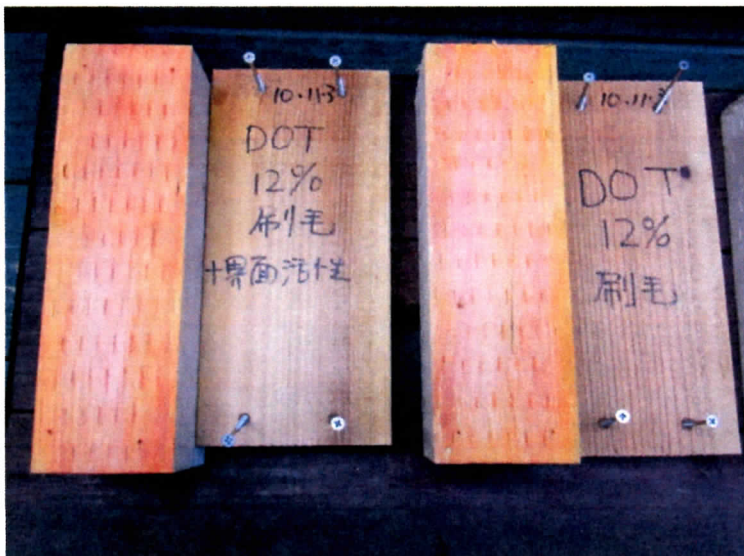 10.11.3
DOT
12%
刷毛
+界面活性
10.11.3
DOT
12%
刷毛